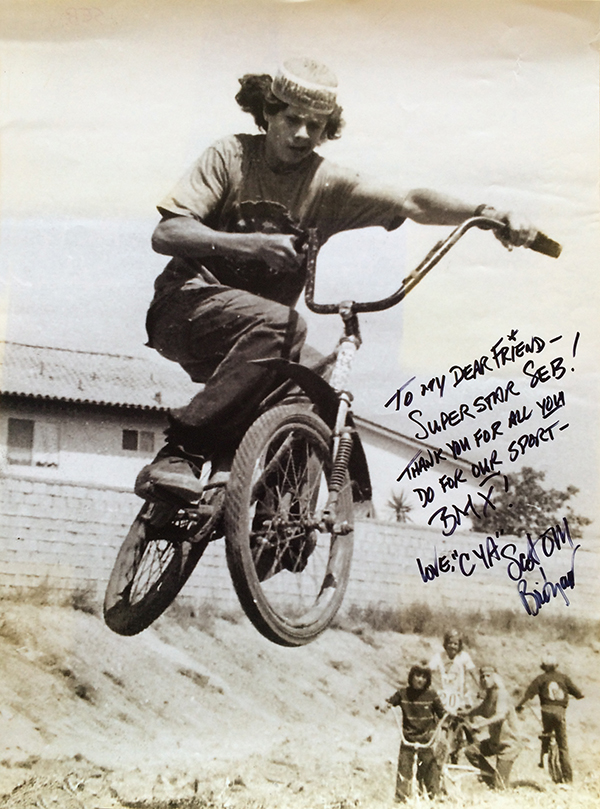 TO MY DEAR FRIEND—
SUPERSTAR SEB!
THANK YOU FOR ALL YOU
DO FOR OUR SPORT—
BMX!
LOVE, "CYA"